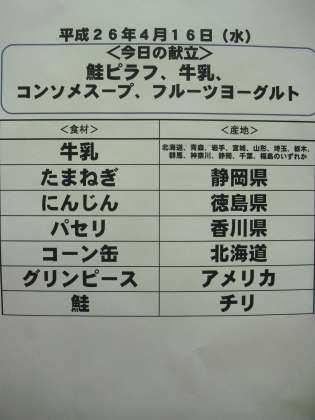 平成２６年４月１６日（水）
＜今日の献立＞
鮭ピラフ、牛乳、
コンソメスープ、フルーツヨーグルト
＜食材＞ ＜産地＞
牛乳 北海道、青森、岩手、宮城、山形、埼玉、栃木、
群馬、神奈川、静岡、千葉、福島のいずれか
たまねぎ 静岡県
にんじん 徳島県
パセリ 香川県
コーン缶 北海道
グリンピース アメリカ
鮭 チリ